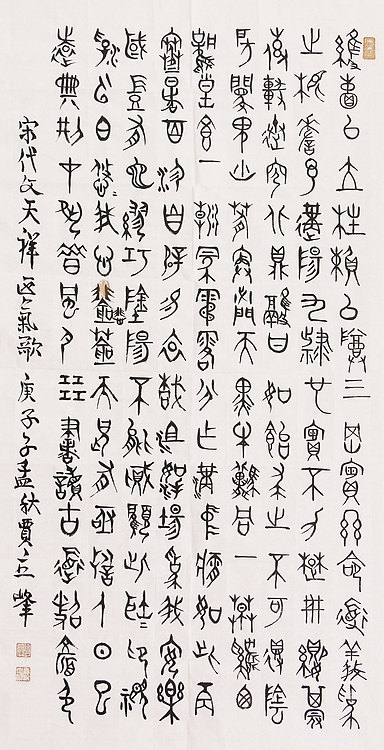 維賴以立柱賴以尊三綱實系命道義為
之根嗟予遘陽九隸也實不力楚囚纓其冠
傳車送窮北鼎鑊甘如飴求之不可得陰
房闐鬼火春院閟天黑牛驥同一皂雞栖
鳳凰食一朝蒙霧露分作溝中瘠如此再
寒暑百沴自辟易哀哉沮洳場為我安樂
國豈有他繆巧陰陽不能賊顧此耿耿在仰視
浮雲白悠悠我心悲蒼天曷有極哲人日已
遠典刑在夙昔風簷展書讀古道照顏色
宋代文天祥正氣歌 庚子孟秋賈立峯